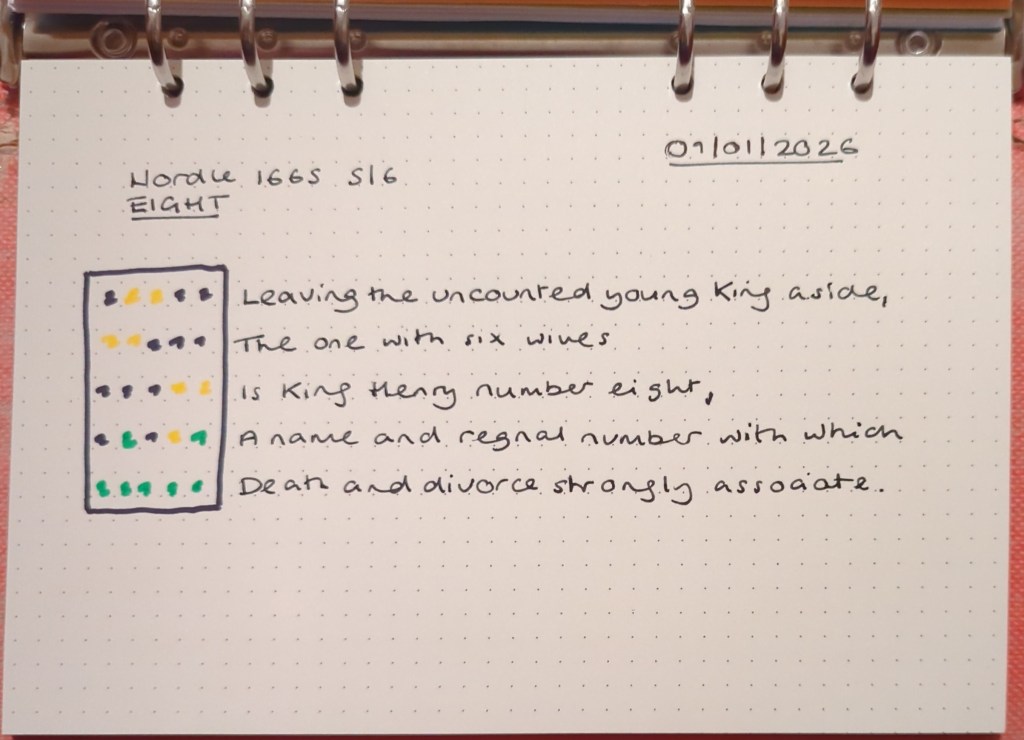 01/01/2026
Wordle 1665 5/6
EIGHT
Leaving the uncounted young King aside,
The one with six wives
Is King Henry number eight,
A name and regnal number with which
Death and divorce strongly associate.